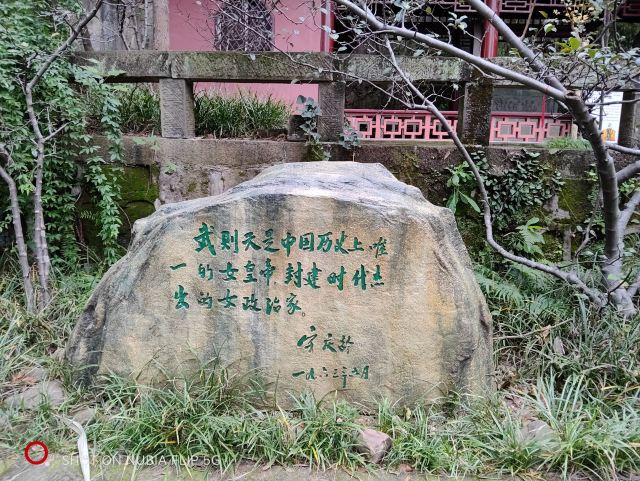 武则天是中国历史上唯
一的女皇帝封建时代杰
出的女政治家。
宋庆龄
一九六三年六月
SHOT ON NUBIA FLIP 5G